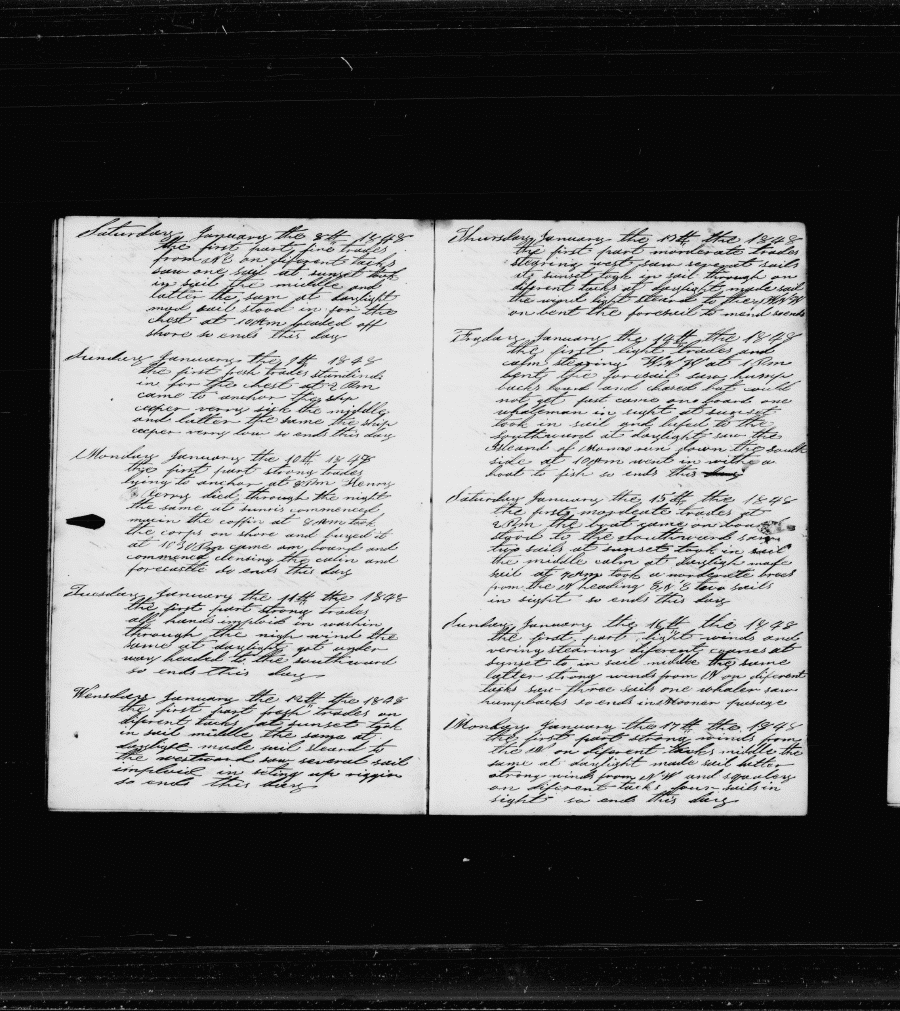 Saturday January the 8th 1848
the first part fine trades
from NE on different tacks
saw one sail at sunset took
in sail the middle and
latter the sam at daylight
mad sail stood in for the
chest at 10 Am headed off
shore so ends this day
Sunday January the 9th 1848
the first fresh trades standind
in for the chest at 2 Pm
came to anchor the ship
cooper verry sick the middle
and latter the same the ship
cooper verry low so ends this day
Monday January the 10th 1848
the first part strong trades
lying to anchor at 8 Pm Henry
died through the night
the same at sunris commenced
the coffin at 8 Am took
the corps on shore and buried it
at 10 30 came on board and
commenced clensing the cabin and
forecastle so ends this day
Tuesday January the 11th the 1848
the first part strong trades
all hands imploid in washin
through the nigh wind the
same at daylight got under
way headed to the southward
so ends this day
Wensday January the 12th the 1848
the first part fresh trades on
diferent tacks at sunset took
in sail middle the same at
daylight made sail steard to
the westward saw several sail
imploid in seting up riggin
so ends this day
Thursday January the 13th the 1848
the first part moderate trades
stearing west saw several sails
at sunset took in sail through on
diferent tacks at daylight made sail
the wind light steard to the WNW
on bent the foresail to mend so ends
Fryday January the 14th the 1848
the first light trades and
calm stearing at Pm
bent the foresail saw hump
backs lowd and chased but could
not get fast came on board one
whaleman in sight at sunset
took in sail and lufed to the
southward at daylight saw the
Island of run down the south
side at 10 Am went in with a
boat to fish so ends this
Saturday January the 15th the 1848
the first mordeate trades at
2 Pm the boat came on board
stood to the southward saw
two sails at sunset took in sail
the middle calm at dayligh made
sail at took a morderate breas
from the N heading two sails
in sight so ends this day
Sunday January the 16th the 1848
the first part light winds and
vering stearing diferent coarses at
sunset to in sail midle the same
latter strong winds from on diferent
tacks saw three sails one whaler saw
humpbacks so ends in passage
Monday January the 17th the 1848
the first part strong winds from
the on diferent tacks middle the
same at daylight made sail latter
strong winds from NW and squaley
on diferent tacks four sails in
sight so ends this day